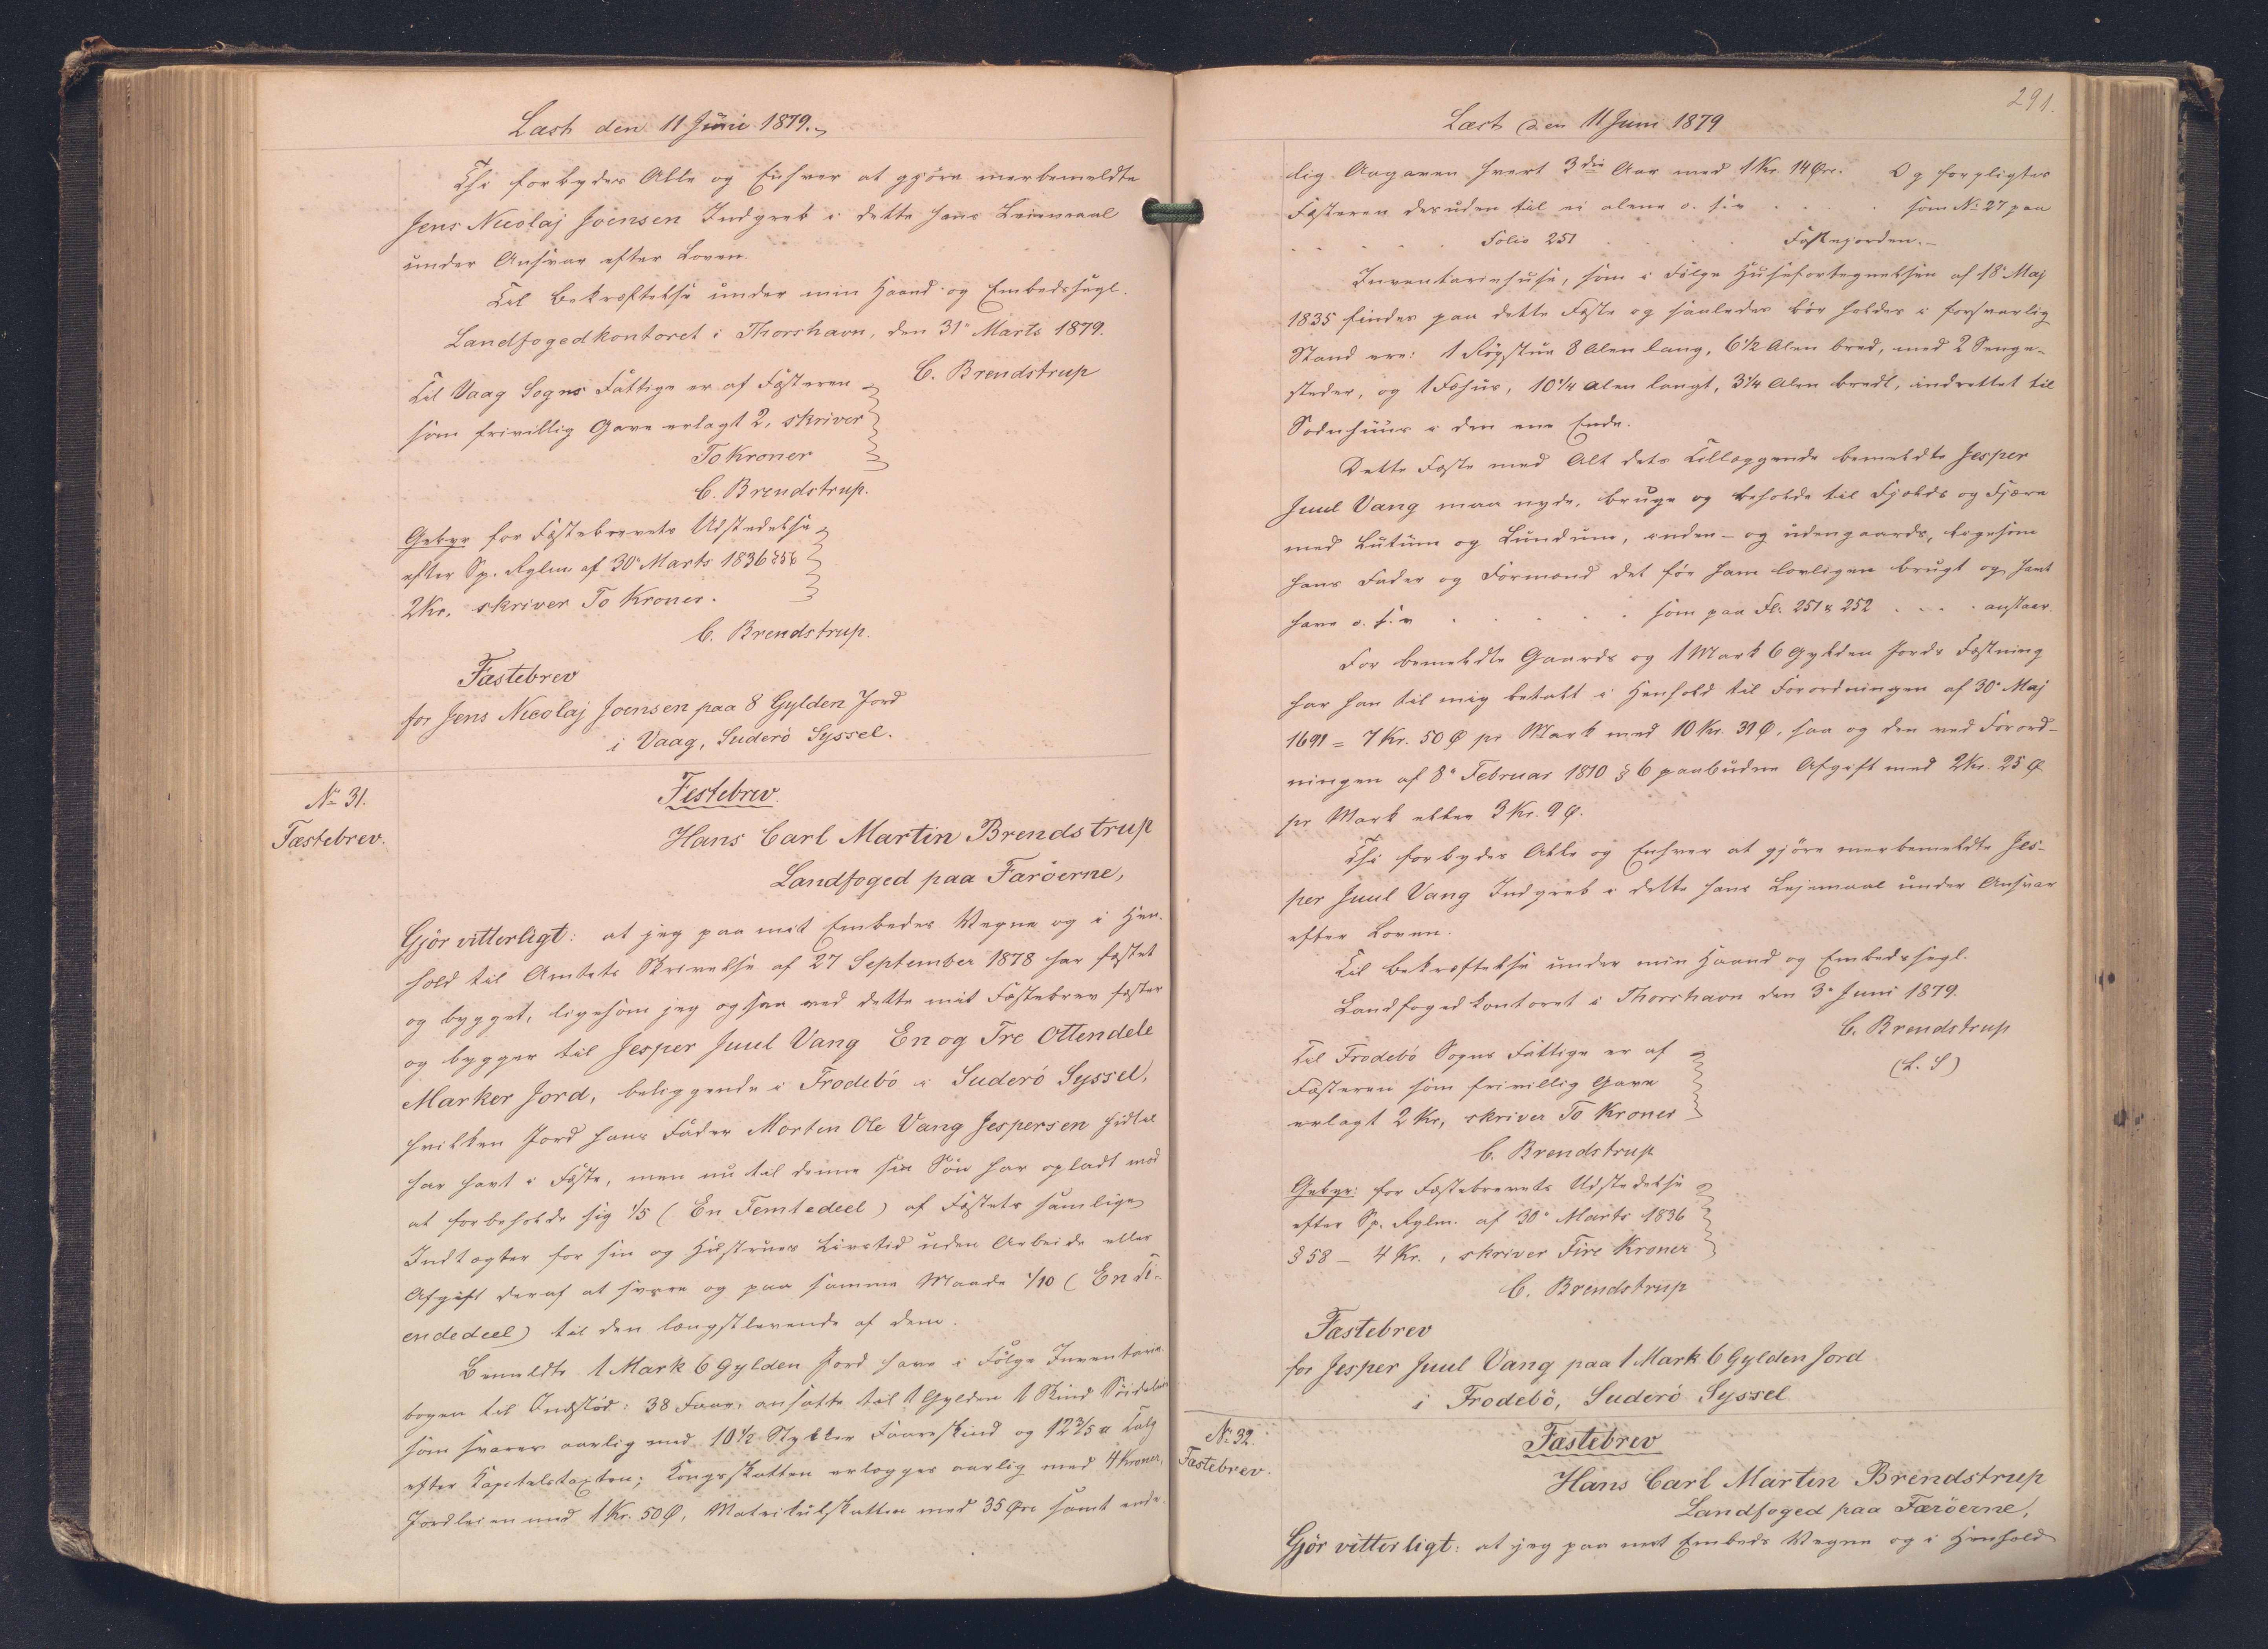 Læst den 11 Juni 1879.
Thi forbydes Alle og Enhver at gjöre merbemeldte
Jens Nicolaj Joensen Indgreb i dette hans Leiemaal
under Ansvar efter Loven.
Til Bekræftelse under min Haand og Embedssegl.
Landfogedkontoret i Thorshavn, den 31te Marts 1879.
C. Brendstrup
Til Vaag Sogns Fattige er af Fæsteren
som frivillig Gave erlagt 2, skriver
To Kroner
C. Brendstrup.
Gebyr for Fæstebrevets Udstedelse
efter Sp. Rglm. af 30te Marts 1836 § 58
2 Kr. skriver To Kroner.
C. Brendstrup.
Fæstebrev
for Jens Nicolaj Joensen paa 8 Gylden Jord
i Vaag, Suderö Syssel.
No 31.
Fæstebrev.
Festebrev.
Hans Carl Martin Brendstrup
Landfoged paa Færöerne,
Gjör vitterligt: at jeg paa mit Embedes Vegne og i Hen-
hold til Amtets Skrivelse af 27 September 1878 har fæstet
og bygget, ligesom jeg ogsaa ved dette mit Fæstebrev fæster
og bygger til Jesper Juul Vang En og Tre Ottendele
Marker Jord, beliggende i Frodebö i Suderö Syssel,
hvilken Jord hans Fader Morten Ole Vang Jespersen hidtil
har havt i Fæste, men nu til denne sin Sön har opladt mod
at forbeholde sig 1/5 (En Femtedeel) af Fæstets samlige
Indtægter for sin og Hustrues Livstid uden Arbeide eller
Afgift deraf at svare og paa samme Maade 1/10 (En Ti-
endedeel) til den længstlevende af dem.
Bemeldte 1 Mark 6 Gylden Jord have i Fölge Inventarie-
bogen til Indstöd: 38 Faar, ansatte til 1 Gylden 1 Skind
som svares aarlig med 10 1/2 Stykker Faareskind og 12 3/5 ℔ Talg
efter Kapitelstaxten; Kongsskatten erlægges aarlig med 4 Kroner,
Jordleien med 1 Kr. 50 Ø, Matrikulskatten med 35 Øre samt ende-
291.
Læst den 11 Juni 1879
lig Aagaven hvert 3die Aar med 1 Kr. 14 Øre. Og forpligtes
Fæsteren desuden til ei alene o. s. v . . . . . som No 27 paa
. . . . . Folio 251 . . . . . Fæstejorden. —
Inventariehuse, som i Fölge Husefortegnelsen af 18 Maj
1835 findes paa dette Fæste og saaledes bör holdes i forsvarlig
Stand ere: 1 Rögstue 8 Alen lang, 6 1/2 Alen bred, med 2 Senge-
steder, og 1 Fæhus, 10 1/4 Alen langt, 3 1/4 Alen bredt, indrettet til
Sodnhuus i den ene Ende.
Dette Fæste med Alt dets Tillæggende bemeldte Jesper
Juul Vang maa nyde, bruge og beholde til Fjelds og Fjære
med Lutum og Lundum, inden- og udengaards, ligesom
hans Fader og Formænd det för ham lovligen brugt og havt
have o. s. v . . . . . som paa Fl. 251 & 252 . . . . anstaar.
For bemeldte Gaards og 1 Mark 6 Gylden Jords Fæstning
har han til mig betalt i Henhold til Forordningen af 30te Maj
1691 = 7 Kr. 50 Ø pr Mark med 10 Kr. 31 Ø, saa og den ved Forord-
ningen af 8te Februar 1810 § 6 paabudne Afgift med 2 Kr. 25 Ø
pr Mark eller 3 Kr. 9 Ø.
Thi forbydes Alle og Enhver at gjöre merbemeldte Jes-
per Juul Vang Indgreb i dette hans Lejemaal under Ansvar
efter Loven.
Til Bekræftelse under min Haand og Embedssegl.
Landfogedkontoret i Thorshavn den 3te Juni 1879.
C. Brendstrup
(L. S)
Til Frodebö Sogns Fattige er af
Fæsteren som frivillig Gave
erlagt 2 Kr, skriver To Kroner
C. Brendstrup
Gebyr: for Fæstebrevets Udstedelse
efter Sp. Rglm. af 30te Marts 1836
§ 58 — 4 Kr., skriver Fire Kroner
C. Brendstrup
Fæstebrev
for Jesper Juul Vang paa 1 Mark 6 Gylden Jord
i Frodebö, Suderö Syssel
No 32.
Fæstebrev.
Fæstebrev
Hans Carl Martin Brendstrup
Landfoged paa Færöerne,
Gjör vitterligt: at jeg paa mit Embeds Vegne og i Henhold